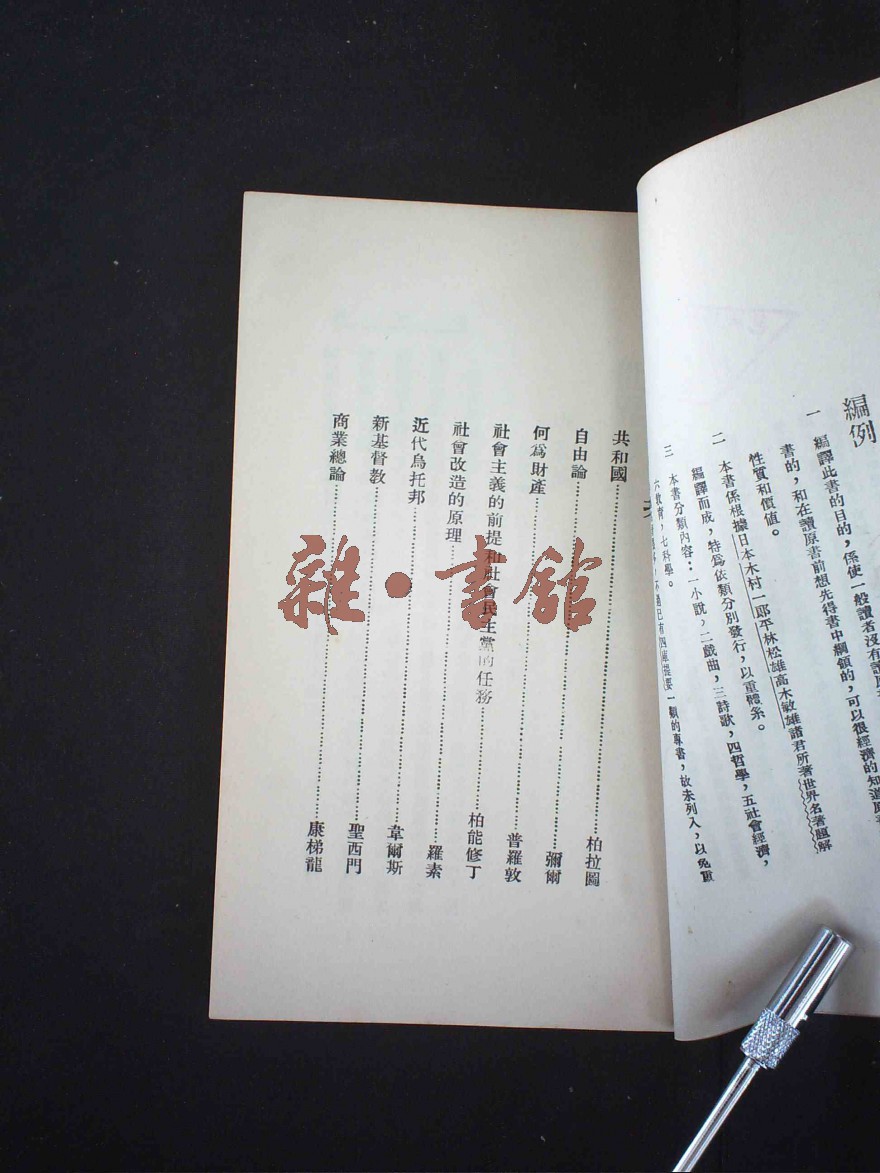 編例
一 編譯此書的目的，係使一般讀者沒有讀原
書的，和在讀原書前想先得書中綱領的，可以很經濟的知道原書
性質和價値。
二 本書係根據日本木村一郎平林松雄高木敏雄諸君所著世界名著題解
編譯而成，特爲依類分別發行，以重體系。
三 本書分類內容：一小說，二戲曲，三詩歌，四哲學，五社會經濟，
六敎育，七科學。
不過已有四庫提要一類的專書，故未列入，以免重
共和國……柏拉圖
自由論……彌爾
何爲財產……普羅敦
社會主義的前提和社會民主黨的任務……柏能修丁
社會改造的原理……羅素
近代烏托邦……韋爾斯
新基督敎……聖西門
商業總論……康梯龍
雜·書館